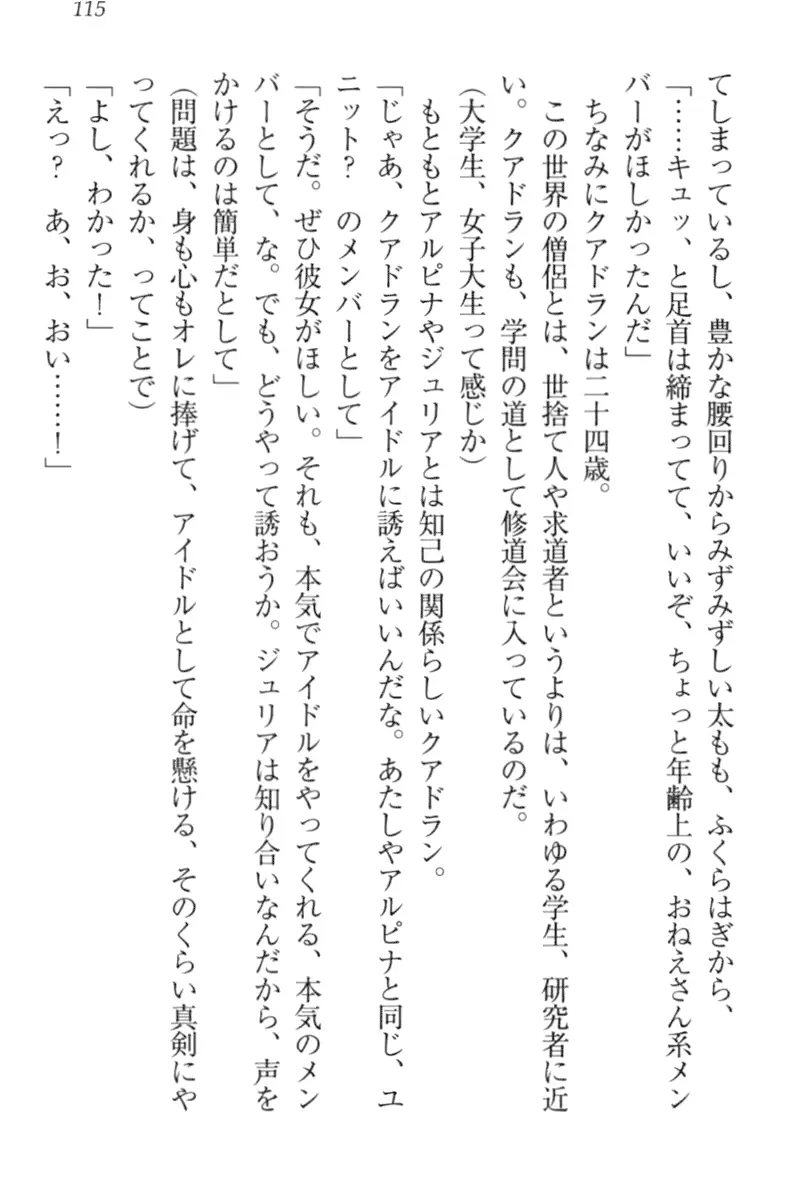 115
てしまっているし、豊かな腰回りからみずみずしい太もも、ふくらはぎから、
「……キュッ、と足首は締まってて、いいぞ、ちょっと年齢上の、おねえさん系メン
バーがほしかったんだ」
ちなみにクアドランは二十四歳。
この世界の僧侶とは、世捨て人や求道者というよりは、いわゆる学生、研究者に近
い。クアドランも、学問の道として修道会に入っているのだ。
(大学生、女子大生って感じか)
もともとアルピナやジュリアとは知己の関係らしいクアドラン。
「じゃあ、クアドランをアイドルに誘えばいいんだな。あたしやアルピナと同じ、ユ
ニット? のメンバーとして」
「そうだ。ぜひ彼女がほしい。それも、本気でアイドルをやってくれる、本気のメン
バーとして、な。でも、どうやって誘おうか。ジュリアは知り合いなんだから、声を
かけるのは簡単だとして」
(問題は、身も心もオレに捧げて、アイドルとして命を懸ける、そのくらい真剣にや
ってくれるか、ってことで)
「よし、わかった!」
「えっ? あ、お、おい……!」